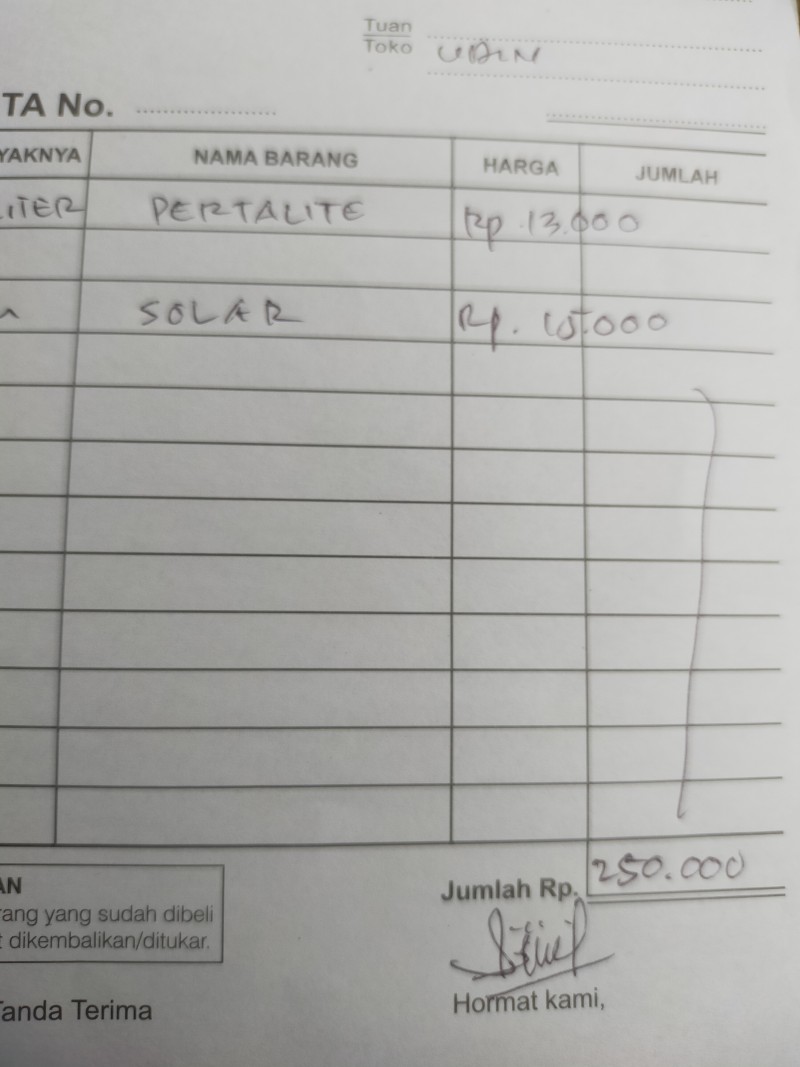 Tuan
Toko UDIN
TA No.
YAKNYA NAMA BARANG HARGA JUMLAH
LITER PERTALITE Rp. 13.000
SOLAR Rp. 15.000
Jumlah Rp. 250.000
AN
rang yang sudah dibeli
t dikembalikan/ditukar.
Tanda Terima
Hormat kami,